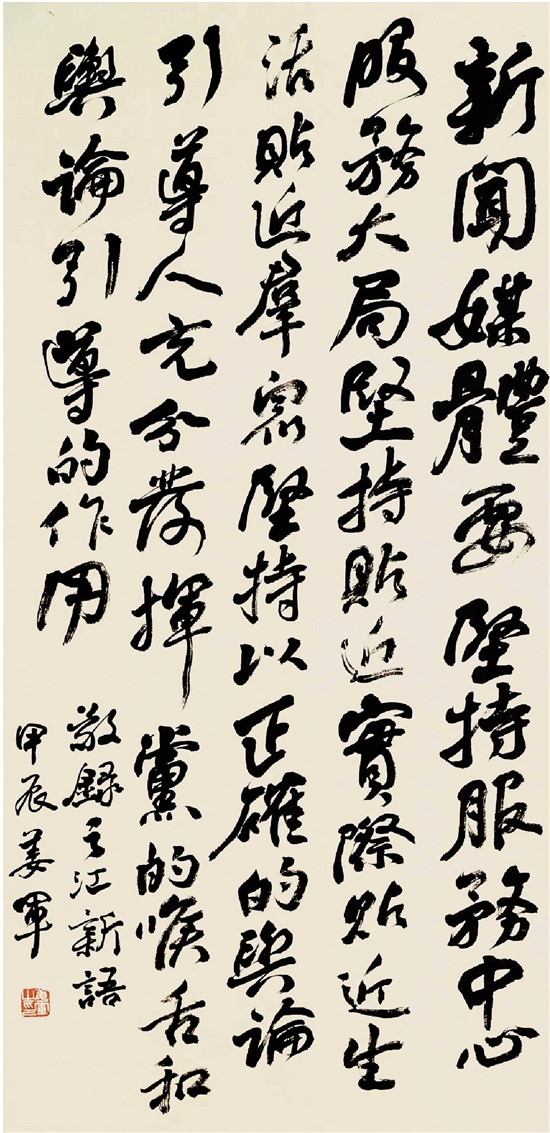 新聞媒體要堅持服務中心
服務大局堅持貼近實際貼近生
活貼近羣眾堅持以正確的輿論
引導人充分發揮黨的喉舌和
輿論引導的作用
敬錄之江新語
甲辰姜軍